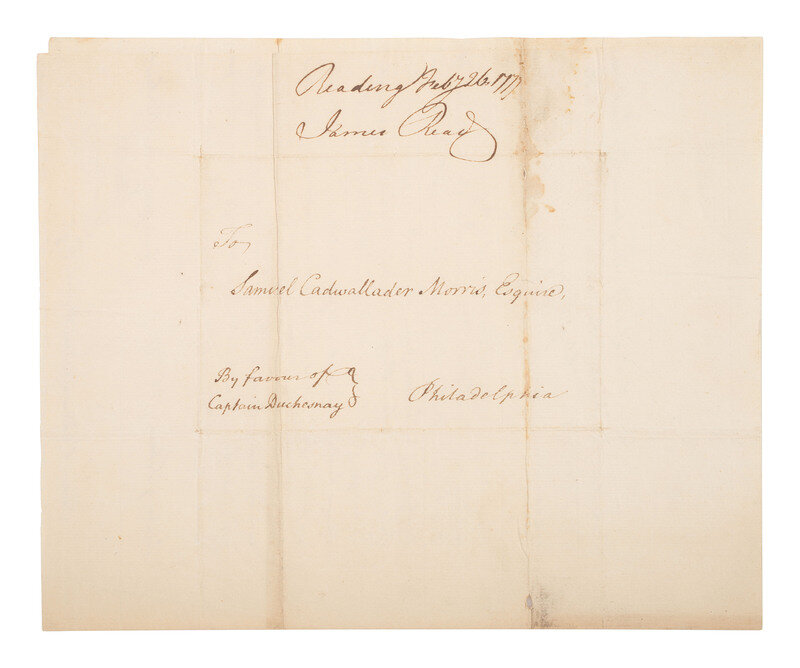 Reading Feby 26. 1777
James Read
To
Samuel Cadwallader Morris, Esquire,
By favour of
Captain Duchesnay
Philadelphia